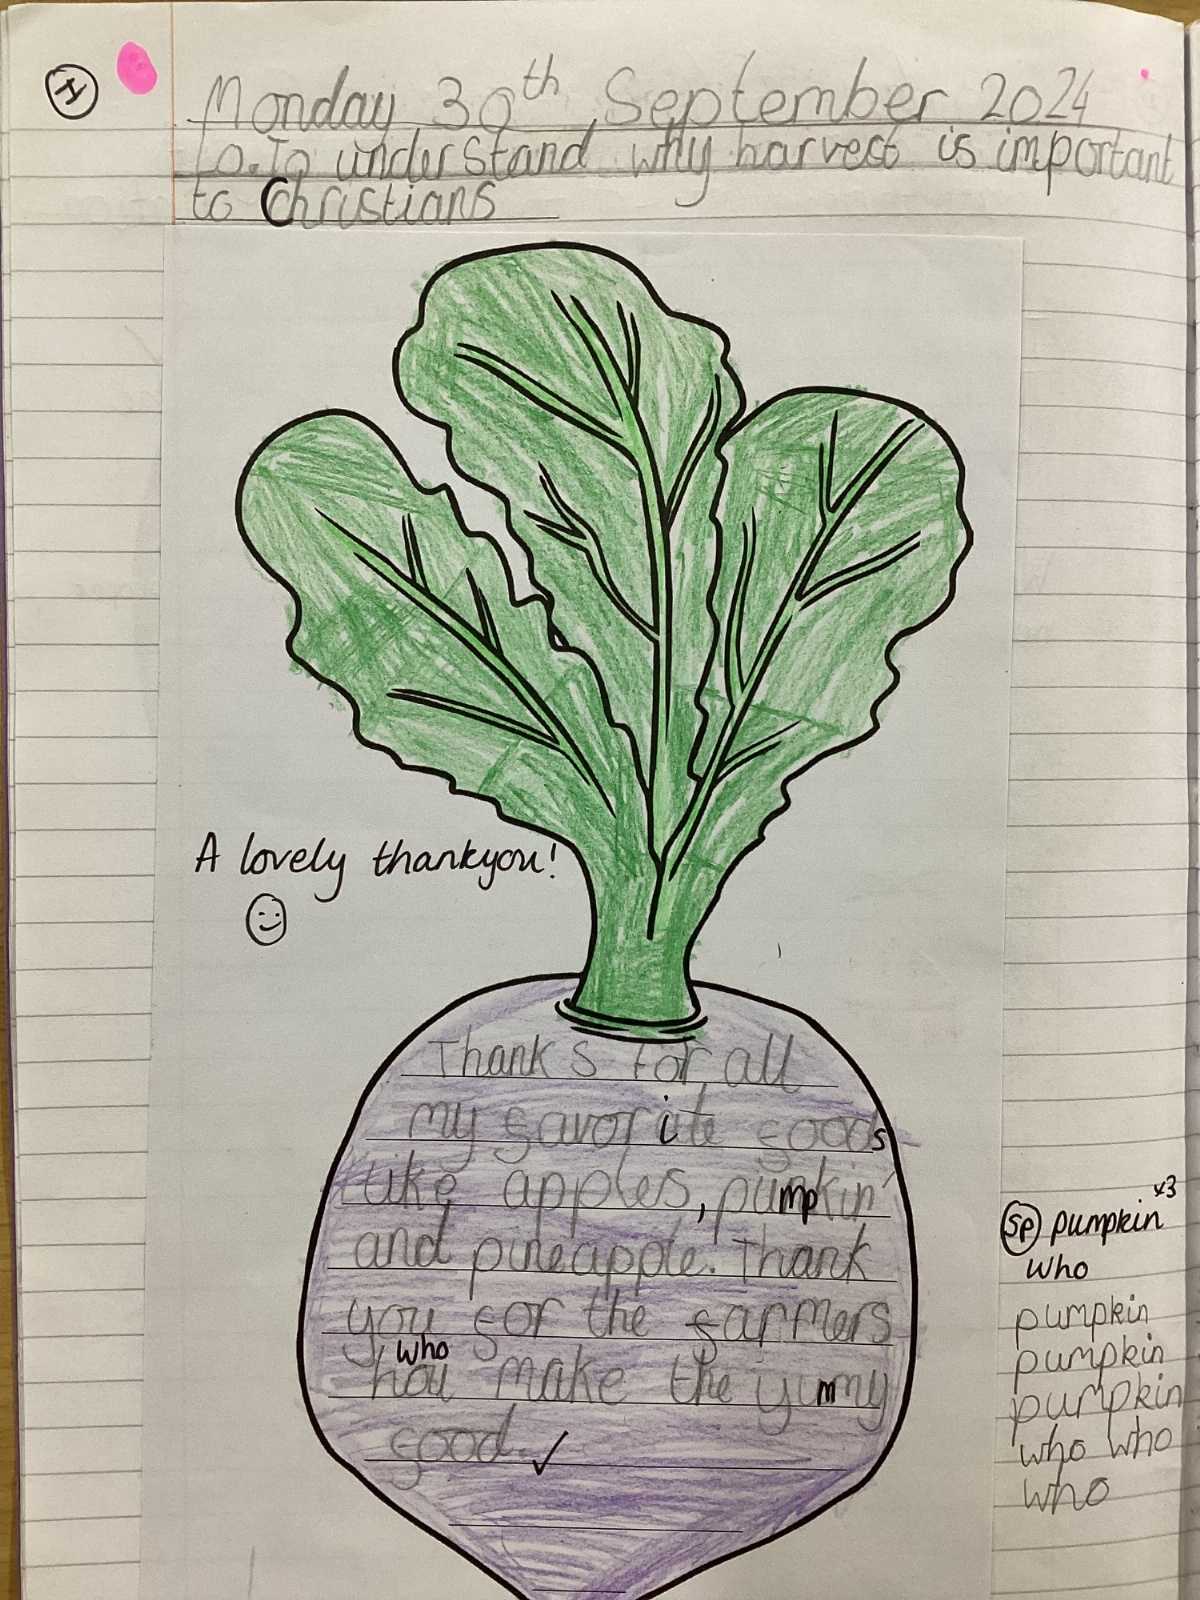 H
Monday 30th September 2024
Lo. To understand why harvest is important
to Christians
A lovely thankyou!
Thanks for all
my favorite foods
like apples, pumpkin
and pineapple. Thank
you for the farmers
who
hou make the yummy
food. ✓
sp pumpkin x3
who
pumpkin
pumpkin
pumpkin
who who
who